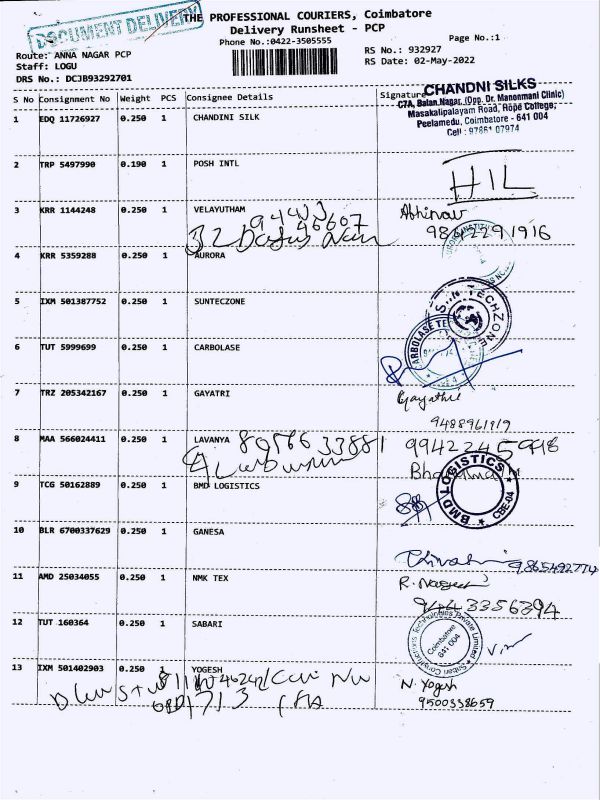 DOCUMENT DELIVERY
THE PROFESSIONAL COURIERS, Coimbatore
Delivery Runsheet - PCP
Phone No.:0422-3505555
Page No.:1
Route: ANNA NAGAR PCP
RS No.: 932927
Staff: LOGU
RS Date: 02-May-2022
DRS No.: DCJB93292701
S No Consignment No Weight PCS Consignee Details Signature
CHANDNI SILKS
C7A, Balan Nagar, (Opp. Dr. Manonmani Clinic)
Masakalipalayam Road, Hope College,
Peelamedu, Coimbatore - 641 004
Cell : 97861 07974
1 EDQ 11726927 0.250 1 CHANDINI SILK
2 TRP 5497990 0.190 1 POSH INTL
HIL
3 KRR 1144248 0.250 1 VELAYUTHAM
Abhinav
4 KRR 5359288 0.250 1 AURORA
5 IXM 501387752 0.250 1 SUNTECZONE
SUN TECHZONE
6 TUT 5999699 0.250 1 CARBOLASE
CARBOLASE
7 TRZ 205342167 0.250 1 GAYATRI
Gayathri
9488961919
8 MAA 566024411 0.250 1 LAVANYA
9 TCG 50162889 0.250 1 BMD LOGISTICS
BMD LOGISTICS
CBE-04
10 BLR 6700337629 0.250 1 GANESA
9865492774
11 AMD 25034055 0.250 1 NMK TEX
9443356394
12 TUT 160364 0.250 1 SABARI
Technologies Private Limited
Coimbatore
641 004
13 IXM 501402903 0.250 1 YOGESH
N. Yogesh
9500338659